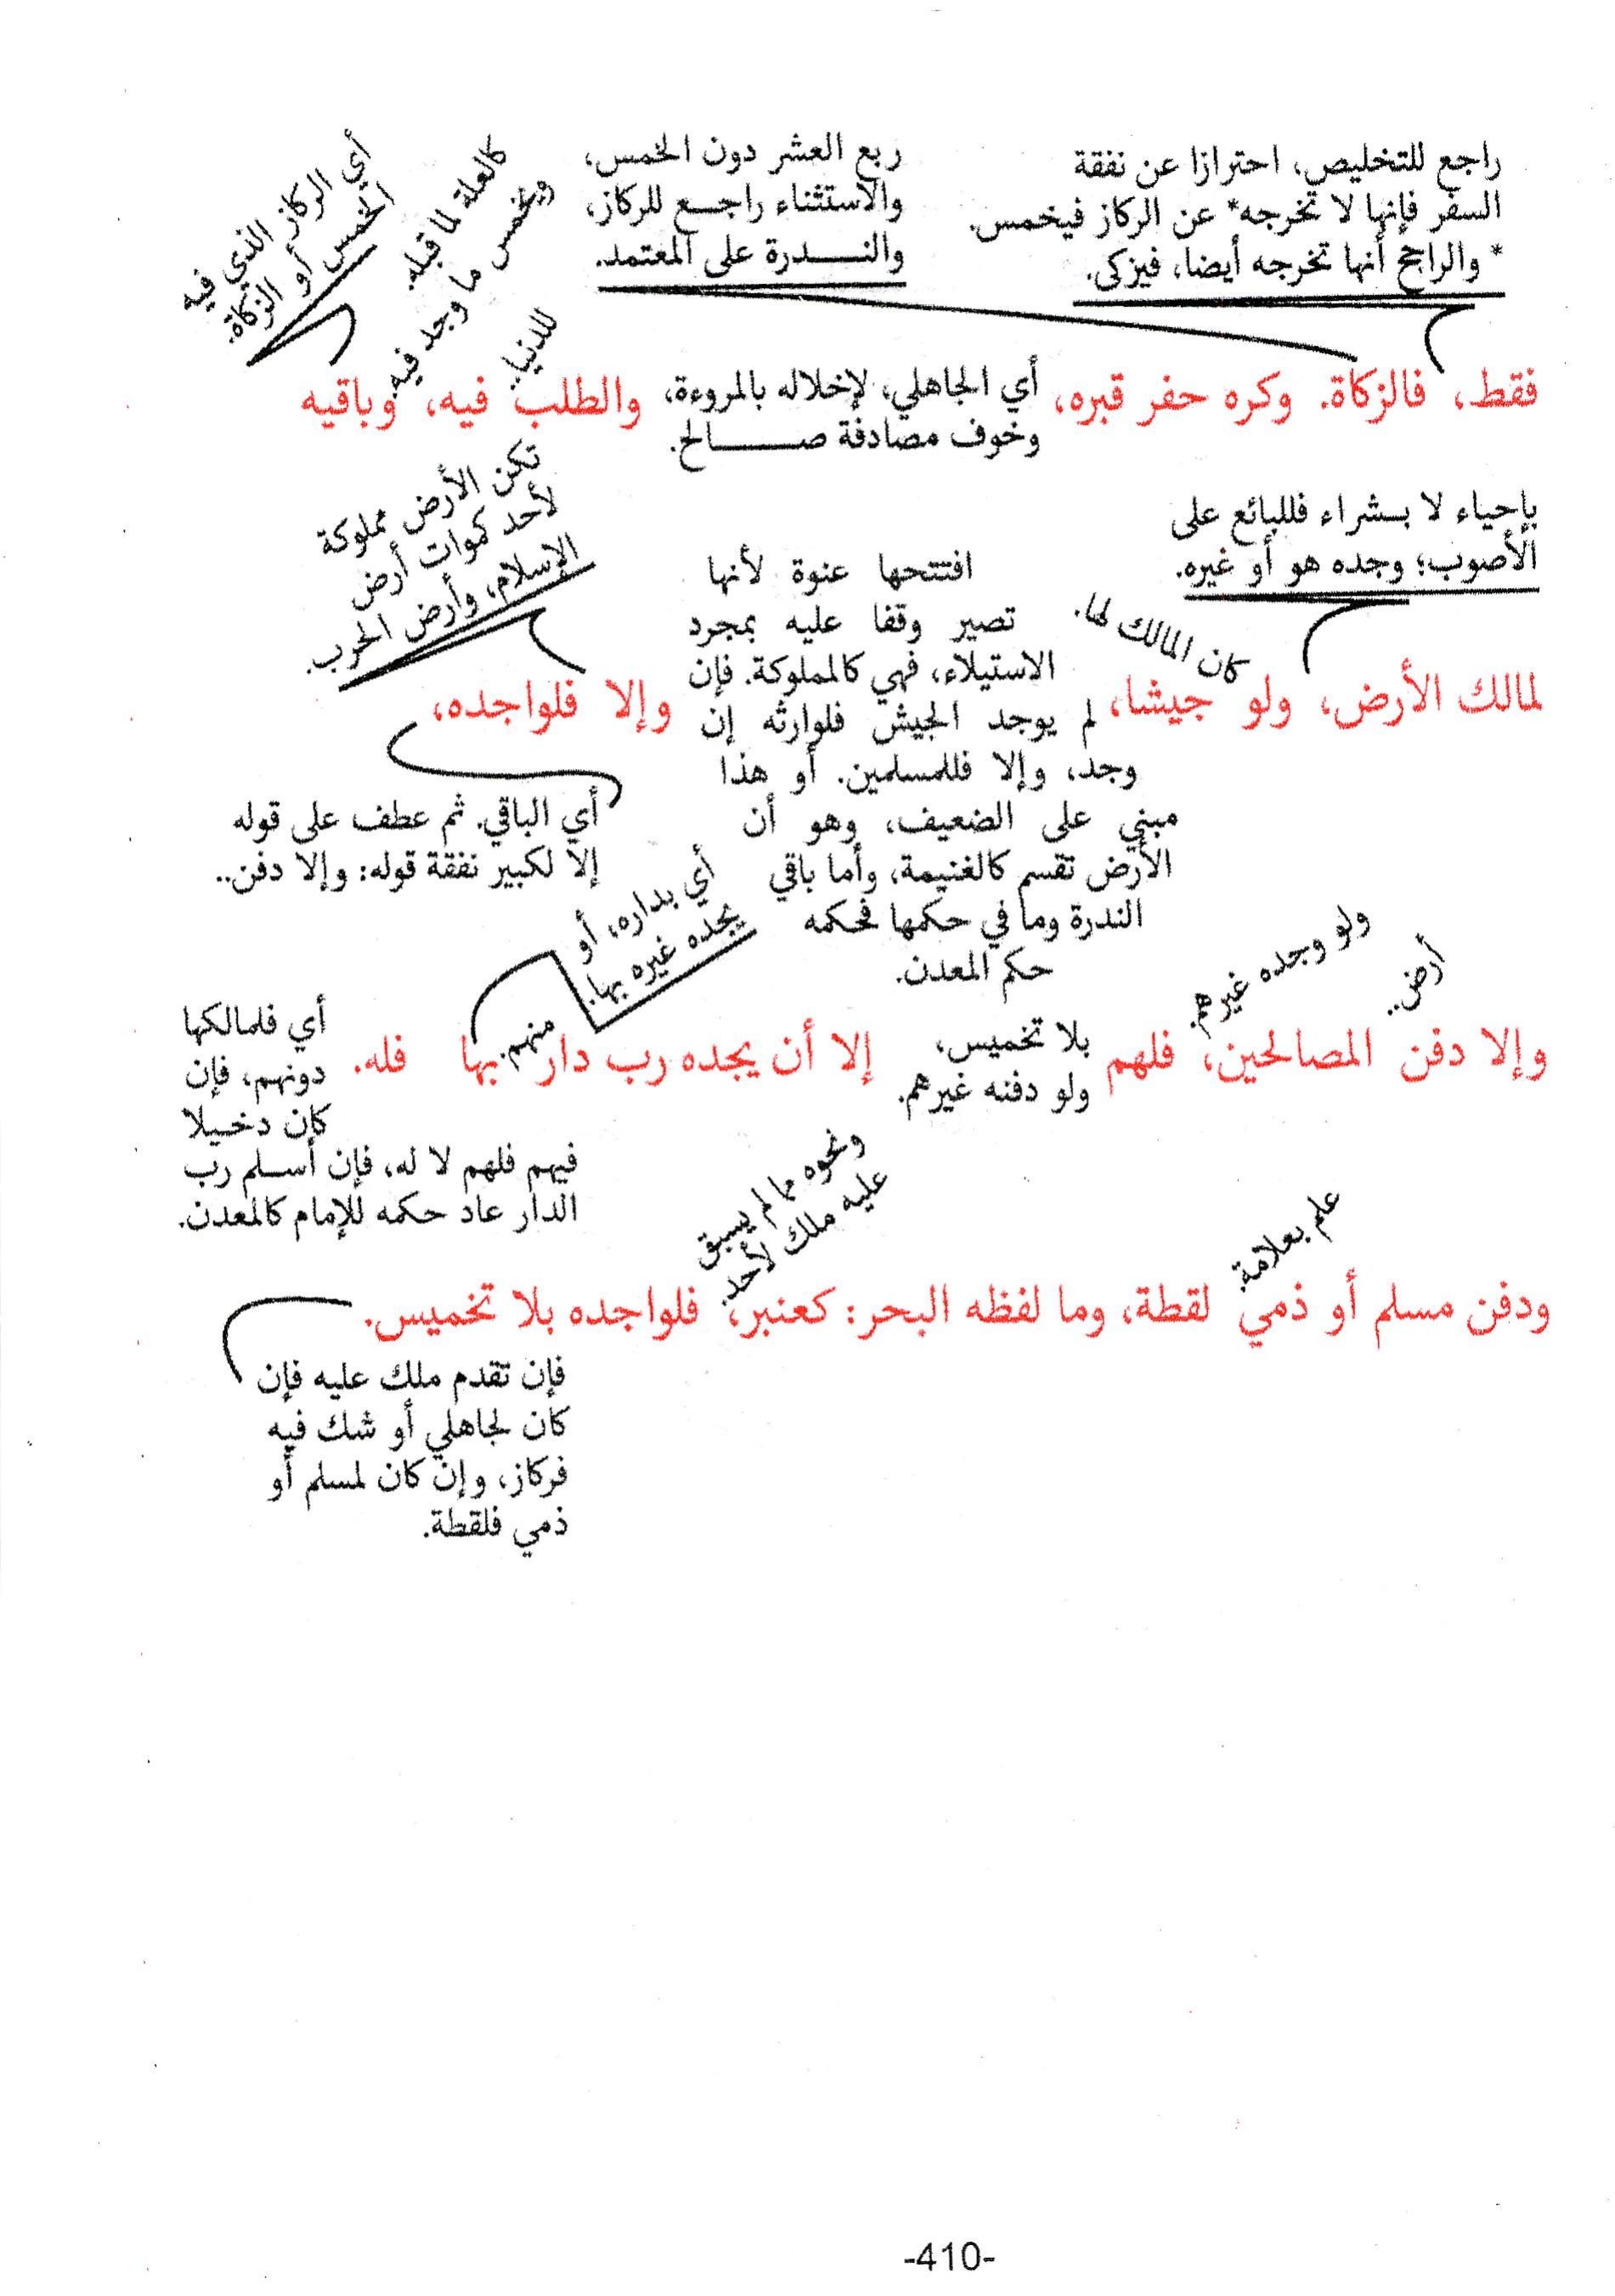 راجع للتخليص، احترازا عن نفقة
السفر فإنها لا تخرجه* عن الركاز فيخمس.
* والراجح أنها تخرجه أيضا، فيزكى.
ربع العشر دون الخمس،
والاستثناء راجع للركاز،
والندرة على المعتمد.
كالعلة لما قبله.
ويخمس ما وجد فيه.
للدنيا..
أي الركاز الذي فيه
الخمس أو الزكاة.
فقط، فالزكاة. وكره حفر قبره،
أي الجاهلي، لإخلاله بالمروءة،
وخوف مصادفة صالح.
والطلب فيه، وباقيه
بإحياء لا بشراء فللبائع على
الأصوب؛ وجده هو أو غيره.
كان المالك لها.
تكن الأرض مملوكة
لأحد كموات أرض
الإسلام، وأرض الحرب.
لمالك الأرض، ولو جيشا،
افتتحها عنوة لأنها
تصير وقفا عليه بمجرد
الاستيلاء، فهي كالمملوكة. فإن
لم يوجد الجيش فلوارثه إن
وجد، وإلا فللمسلمين. أو هذا
مبني على الضعيف، وهو أن
الأرض تقسم كالغنيمة، وأما باقي
الندرة وما في حكمها فحكمه
حكم المعدن.
وإلا فلواجده،
أي الباقي. ثم عطف على قوله
إلا لكبير نفقة قوله: وإلا دفن..
أرض..
ولو وجده غيرهم.
وإلا دفن المصالحين، فلهم
بلا تخميس،
ولو دفنه غيرهم.
إلا أن يجده رب دار بها فله.
منهم.
أي بداره، أو
يجده غيره بها.
أي فلمالكها
دونهم، فإن
كان دخيلا
فيهم فلهم لا له، فإن أسلم رب
الدار عاد حكمه للإمام كالمعدن.
علم بعلامة.
ونحوه مما لم يسبق
عليه ملك لأحد.
ودفن مسلم أو ذمي لقطة، وما لفظه البحر: كعنبر، فلواجده بلا تخميس.
فإن تقدم ملك عليه فإن
كان لجاهلي أو شك فيه
فركاز، وإن كان لمسلم أو
ذمي فلقطة.
-410-